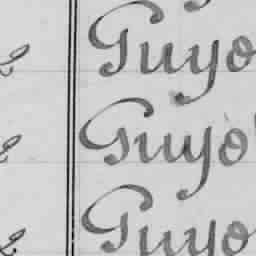 Guyo
Guyo
Guyo